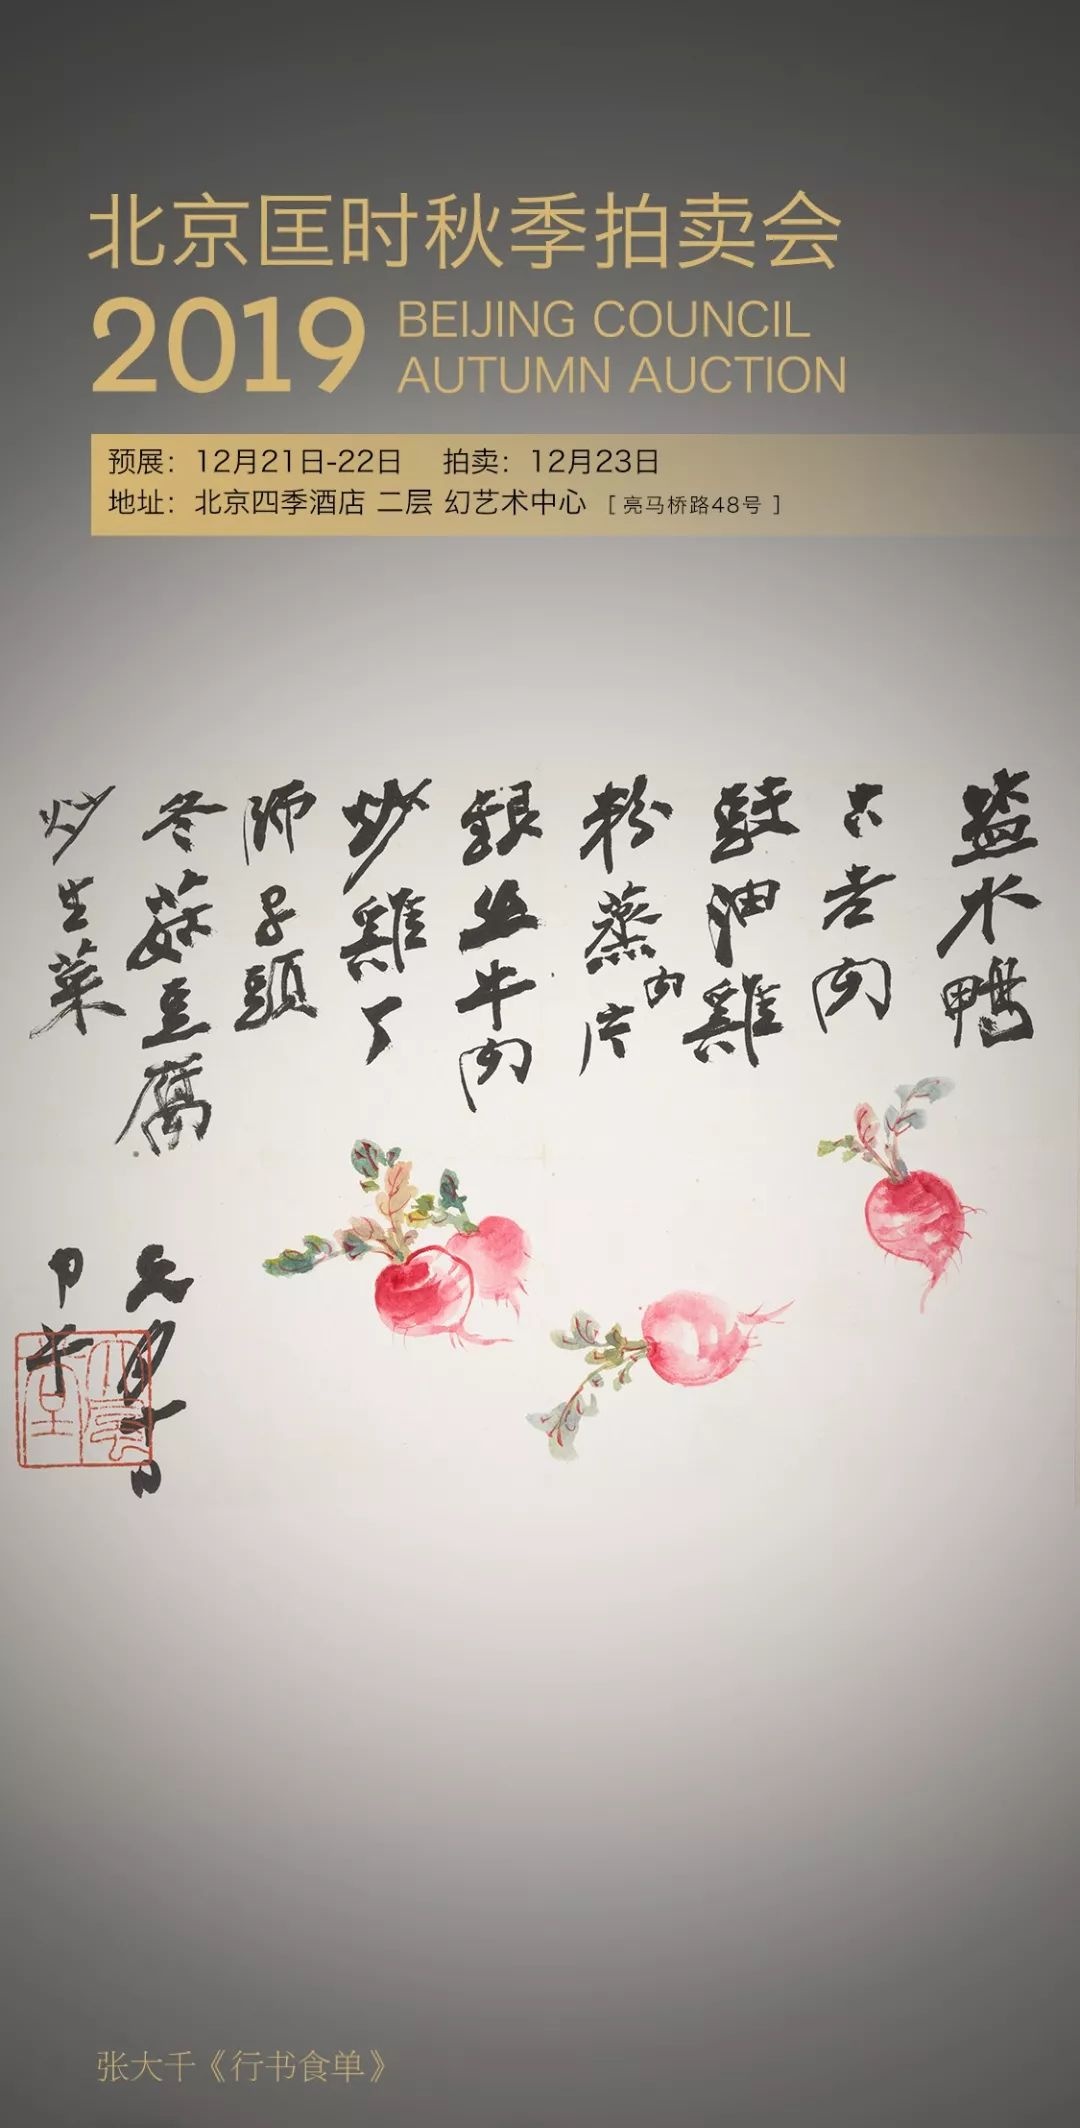 北京匡时秋季拍卖会
2019 BEIJING COUNCIL
AUTUMN AUCTION
预展：12月21日-22日 拍卖：12月23日
地址：北京四季酒店 二层 幻艺术中心 [ 亮马桥路48号 ]
盐水鸭
古老肉
豉油雞
粉蒸肉片
銀丝牛肉
炒雞丁
师子頭
冬菇豆腐
炒生菜
六月十日
午
张大千《行书食单》